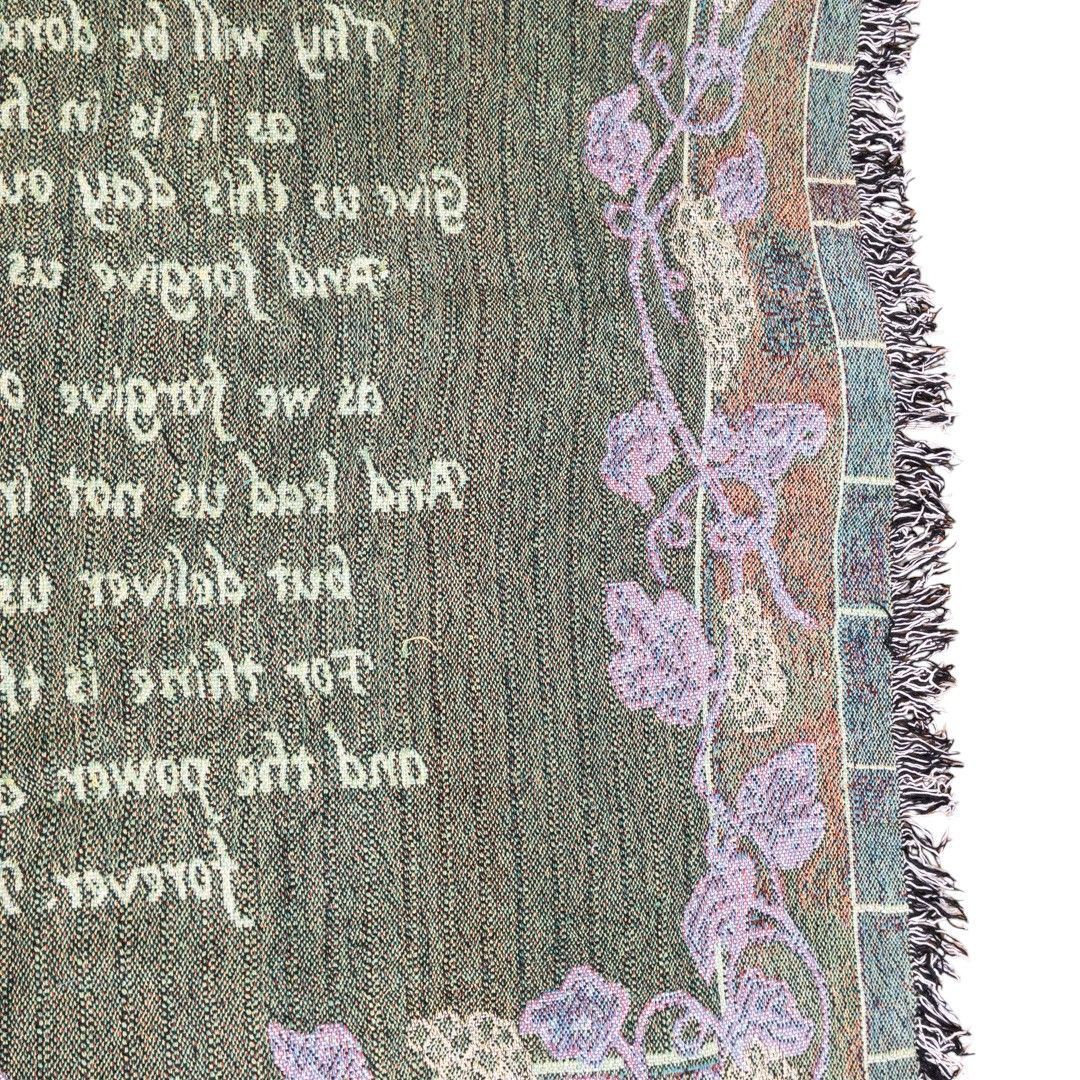 Thy will be done
as it is in h
Give us this day ou
And forgive us
as we forgive o
And lead us not in
but deliver us
For thine is th
and the power,
forever.